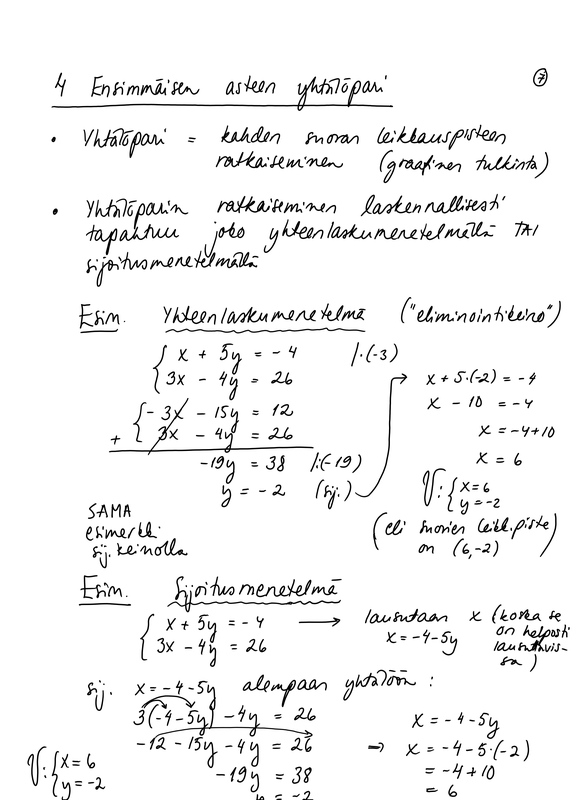 4 Ensimmäisen asteen yhtälöpari
7
• Yhtälöpari = kahden suoran leikkauspisteen
ratkaiseminen (graafinen tulkinta)
• Yhtälöparin ratkaiseminen laskennallisesti
tapahtuu joko yhteenlaskumenetelmällä TAI
sijoitusmenetelmällä
Esim. Yhteenlaskumenetelmä ("eliminointikeino")
{ x + 5y = -4 |·(-3)
3x - 4y = 26
{ - 3x - 15y = 12
+ 3x - 4y = 26
-19y = 38 |:(-19)
y = -2 (sij.)
x + 5·(-2) = -4
x - 10 = -4
x = -4+10
x = 6
V: { x=6
y=-2
(eli suorien leikk.piste)
on (6,-2)
SAMA
esimerkki
sij. keinolla
Esim. Sijoitusmenetelmä
{ x + 5y = -4 → lausutaan x (koska se
3x - 4y = 26 x = -4-5y on helposti
lausuttavis-
sa)
sij. x = -4-5y alempaan yhtälöön :
3(-4-5y) -4y = 26
-12 -15y -4y = 26
-19y = 38
y = -2
x = -4-5y
⇒ x = -4-5·(-2)
= -4+10
= 6
V: { x=6
y=-2